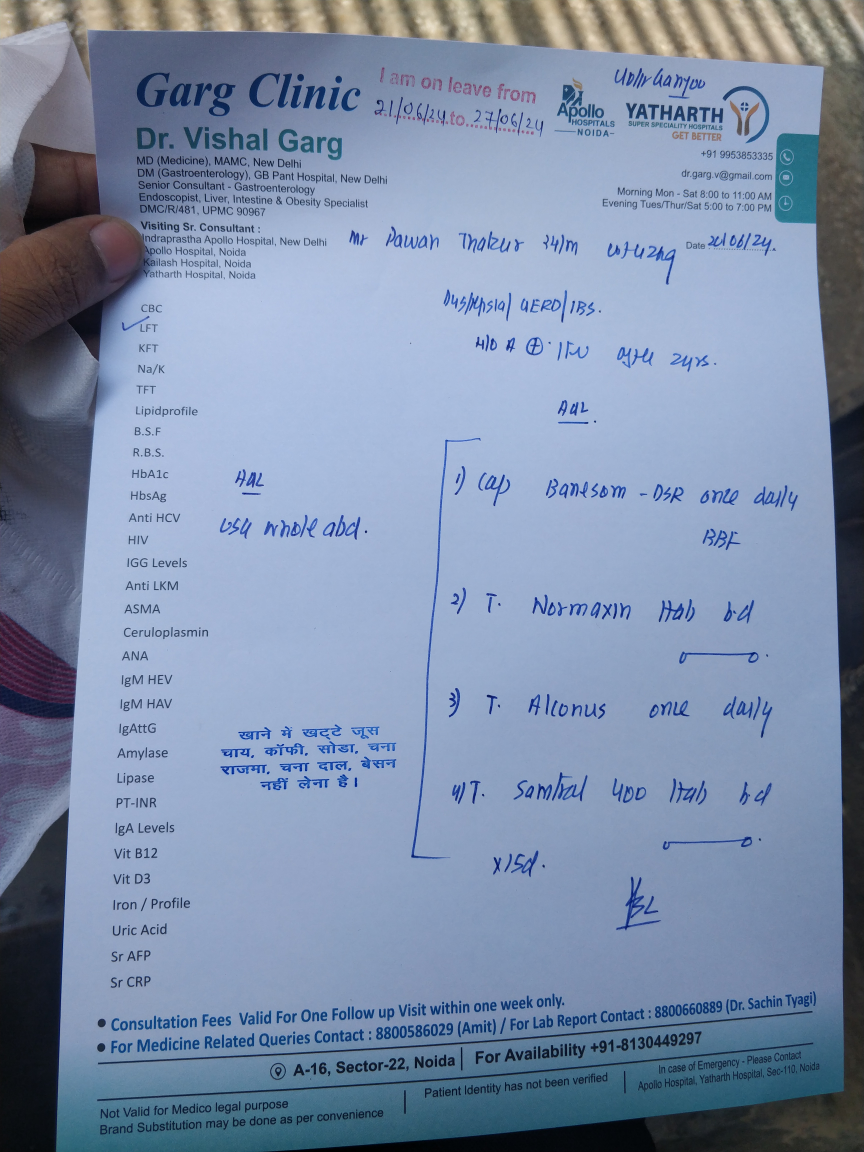 Garg Clinic
I am on leave from
21/06/24 to 27/06/24
Apollo
HOSPITALS
NOIDA
YATHARTH
SUPER SPECIALITY HOSPITALS
GET BETTER
Dr. Vishal Garg
MD (Medicine), MAMC, New Delhi
DM (Gastroenterology), GB Pant Hospital, New Delhi
Senior Consultant - Gastroenterology
Endoscopist, Liver, Intestine & Obesity Specialist
DMC/R/481, UPMC 90967
+91 9953853335
dr.garg.v@gmail.com
Morning Mon - Sat 8:00 to 11:00 AM
Evening Tues/Thur/Sat 5:00 to 7:00 PM
Visiting Sr. Consultant :
Indraprastha Apollo Hospital, New Delhi
Apollo Hospital, Noida
Kailash Hospital, Noida
Yatharth Hospital, Noida
Mr Pawan Thakur 34/m
Date 20/06/24.
Dyspepsia/ GERD/IBS.
2yrs.
Adv.
CBC
LFT
KFT
Na/K
TFT
Lipidprofile
B.S.F
R.B.S.
HbA1c
HbsAg
Anti HCV
HIV
IGG Levels
Anti LKM
ASMA
Ceruloplasmin
ANA
IgM HEV
IgM HAV
IgAttG
Amylase
Lipase
PT-INR
IgA Levels
Vit B12
Vit D3
Iron / Profile
Uric Acid
Sr AFP
Sr CRP
Adv
USG whole abd.
खाने में खट्टे जूस
चाय, कॉफी, सोडा, चना
राजमा, चना दाल, बेसन
नहीं लेना है।
1) Cap Banesom - DSR once daily
BBF
2) T. Normaxin 1tab bd
3) T. Alconus once daily
4) T. Samtral 400 1tab bd
x15d.
• Consultation Fees Valid For One Follow up Visit within one week only.
• For Medicine Related Queries Contact : 8800586029 (Amit) / For Lab Report Contact : 8800660889 (Dr. Sachin Tyagi)
A-16, Sector-22, Noida | For Availability +91-8130449297
Not Valid for Medico legal purpose
Brand Substitution may be done as per convenience
Patient Identity has not been verified
In case of Emergency - Please Contact
Apollo Hospital, Yatharth Hospital, Sec-110, Noida